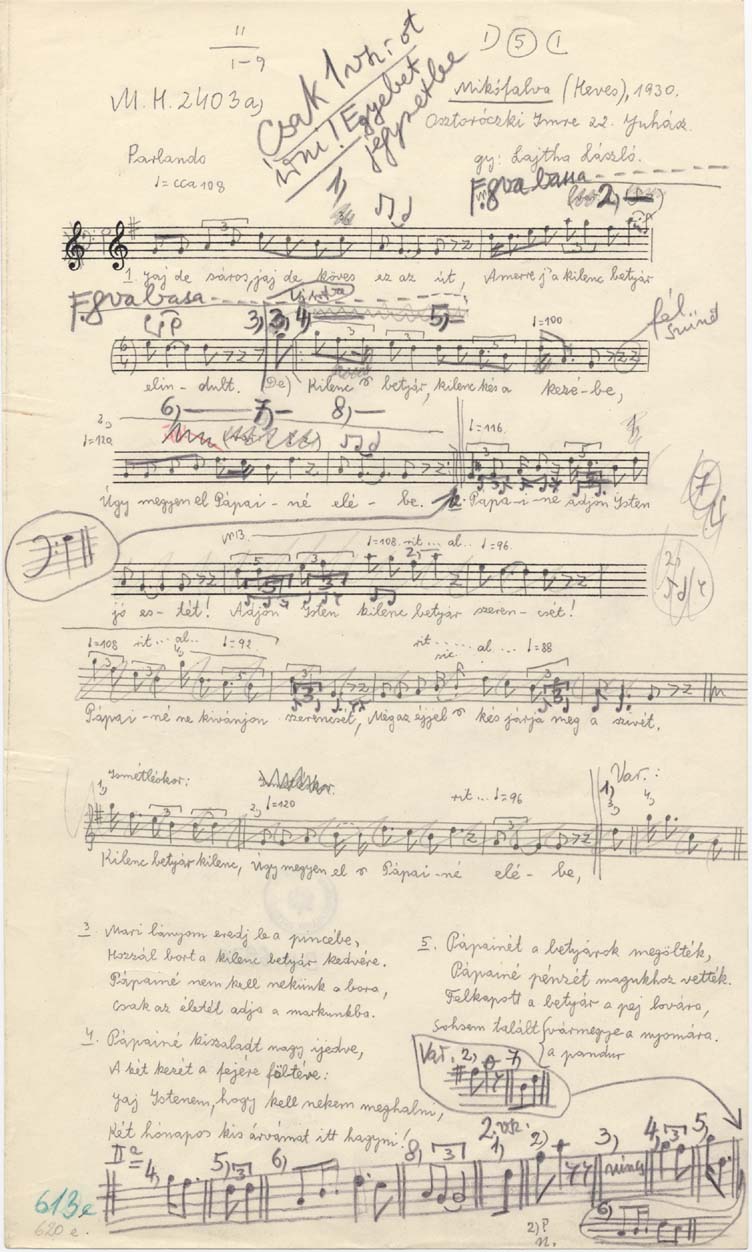 II
1-9
M.H. 2403a)
Csak 1 vsiot
írni! Egyebet
jegyzetbe
5
Mikófalva (Heves), 1930.
Osztoróczki Imre 22. Juhász.
gy: Lajtha László.
Parlando
♩=cca 108
1)
F. 8va bassa
2)
3
1. Jaj de sáros, jaj de köves ez az út, Amerre j'a kilenc betyár
F. 8va bassa
3) 4) 5)
♩=100
fél szünet
elin- dult. (De) Kilenc betyár, kilenc kés a kezé-be,
6) 7) 8)
2,
♩=120
♩=116.
Úgy megyen el Pápai-né elé-be. 2. Pápa-i-né adjon Isten
♩=108. rit... al... ♩=96.
jó es-tét! Adjon Isten kilenc betyár szeren-csét!
♩=108 rit... al... ♩=92
rit..... al... ♩=88
sic
Pápai-né ne kivánjon szerencsét, Még az éjjel kés járja meg a szivét.
Ismétléskor:
Var.:
1, 2, ♩=120
rit... ♩=96
1) 3, 4,
Kilenc betyár kilenc, Úgy megyen el Pápai-né elé-be,
3 Mari lányom eredj le a pincébe,
Hozzál bort a kilenc betyár kedvére.
Pápainé nem kell nekünk a bora,
Csak az életét adja a markunkba.
4. Pápainé kiszaladt nagy ijedve,
A két kezét a fejére föltéve:
Jaj Istenem, hogy kell nekem meghalni,
Két hónapos kis árvámat itt hagyni!
5. Pápainét a betyárok megölték,
Pápainé pénzét magukhoz vették.
Felkapott a betyár a pej lovára,
Sohsem talált {vármegye a nyomára.
{a pandur
Var. 2, 7,
II a
4) 5) 6) 8) 2. vsz. 1) 2) 3) nincs 4) 5)
6)
613e
620 e.
2)